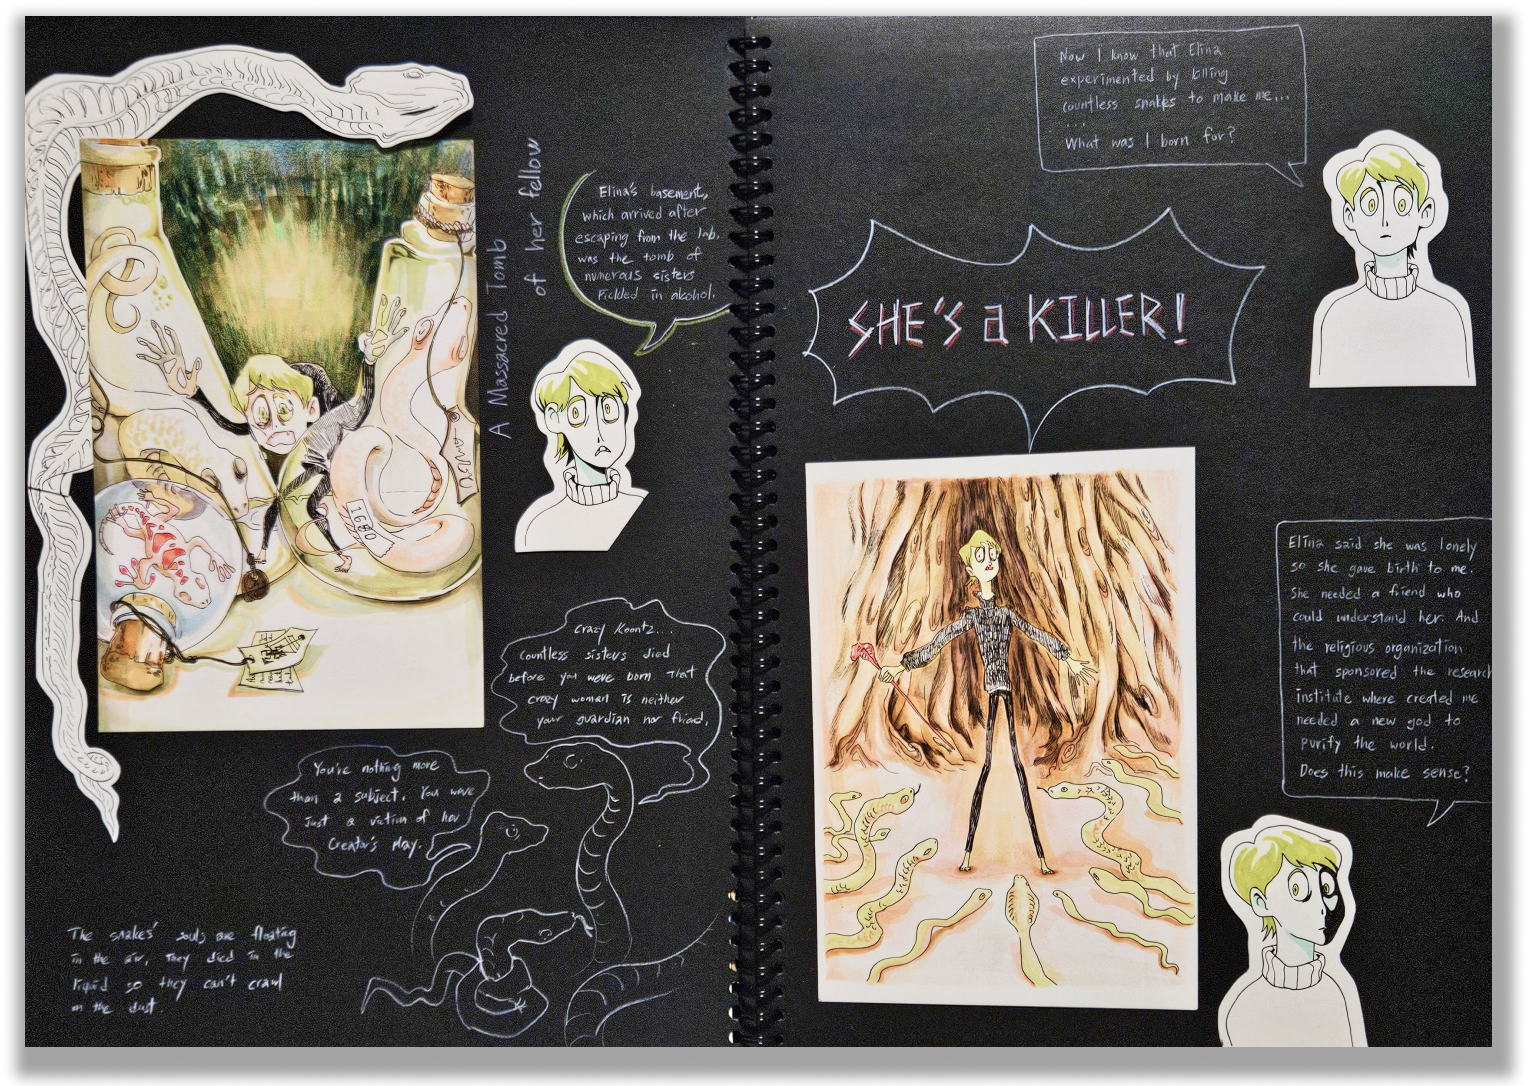 A Massacred Tomb
of her fellow
Elina's basement,
which arrived after
escaping from the lab,
was the tomb of
numerous sisters
Pickled in alcohol.
1680
Crazy Koontz...
Countless sisters died
before you were born That
crazy woman is neither
your guardian nor friend.
You're nothing more
than a subject. You were
Just a victim of her
Creator's play.
The snakes' souls are floating
in the air, They died in the
liquid so they can't crawl
on the dust.
Now I know that Elina
experimented by killing
countless snakes to make me...
...
What was I born for?
SHE'S a KILLER!
Elina said she was lonely
so she gave birth to me.
She needed a friend who
could understand her. And
the religious organization
that sponsored the research
institute where created me
needed a new god to
purify the world.
Does this make sense?